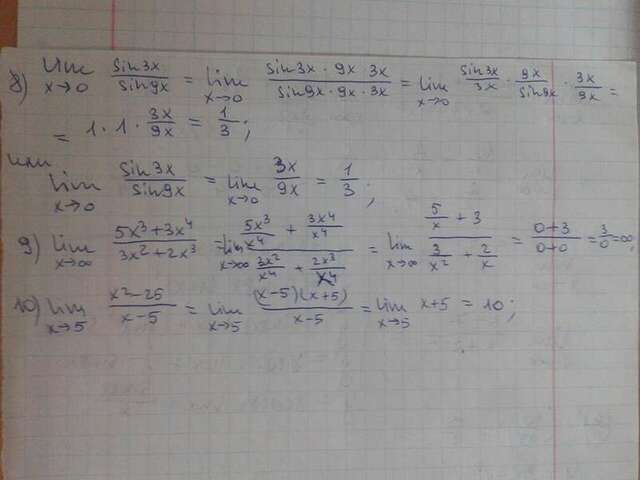 8) lim x→0 sin3x/sin9x = lim x→0 sin3x · 9x · 3x/sin9x · 9x · 3x = lim x→0 sin3x/3x · 9x/sin9x · 3x/9x =
= 1 · 1 · 3x/9x = 1/3;
или
lim x→0 sin3x/sin9x = lim x→0 3x/9x = 1/3;
9) lim x→∞ 5x³+3x⁴/3x²+2x³ = lim x→∞ 5x³/x⁴ + 3x⁴/x⁴/3x²/x⁴ + 2x³/x⁴ = lim x→∞ 5/x + 3/3/x² + 2/x = 0+3/0+0 = 3/0 = ∞;
10) lim x→5 x²-25/x-5 = lim x→5 (x-5)(x+5)/x-5 = lim x→5 x+5 = 10;